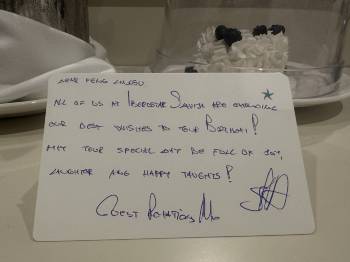 DEAR FENG
ALL OF US AT IBEROSTAR SLAVIJA ARE EXTENDING
OUR BEST WISHES TO YOUR BIRTHDAY!
MAY YOUR SPECIAL DAY BE FULL OF JOY,
LAUGHTER AND HAPPY TAUGHTS!
GUEST RELATIONS